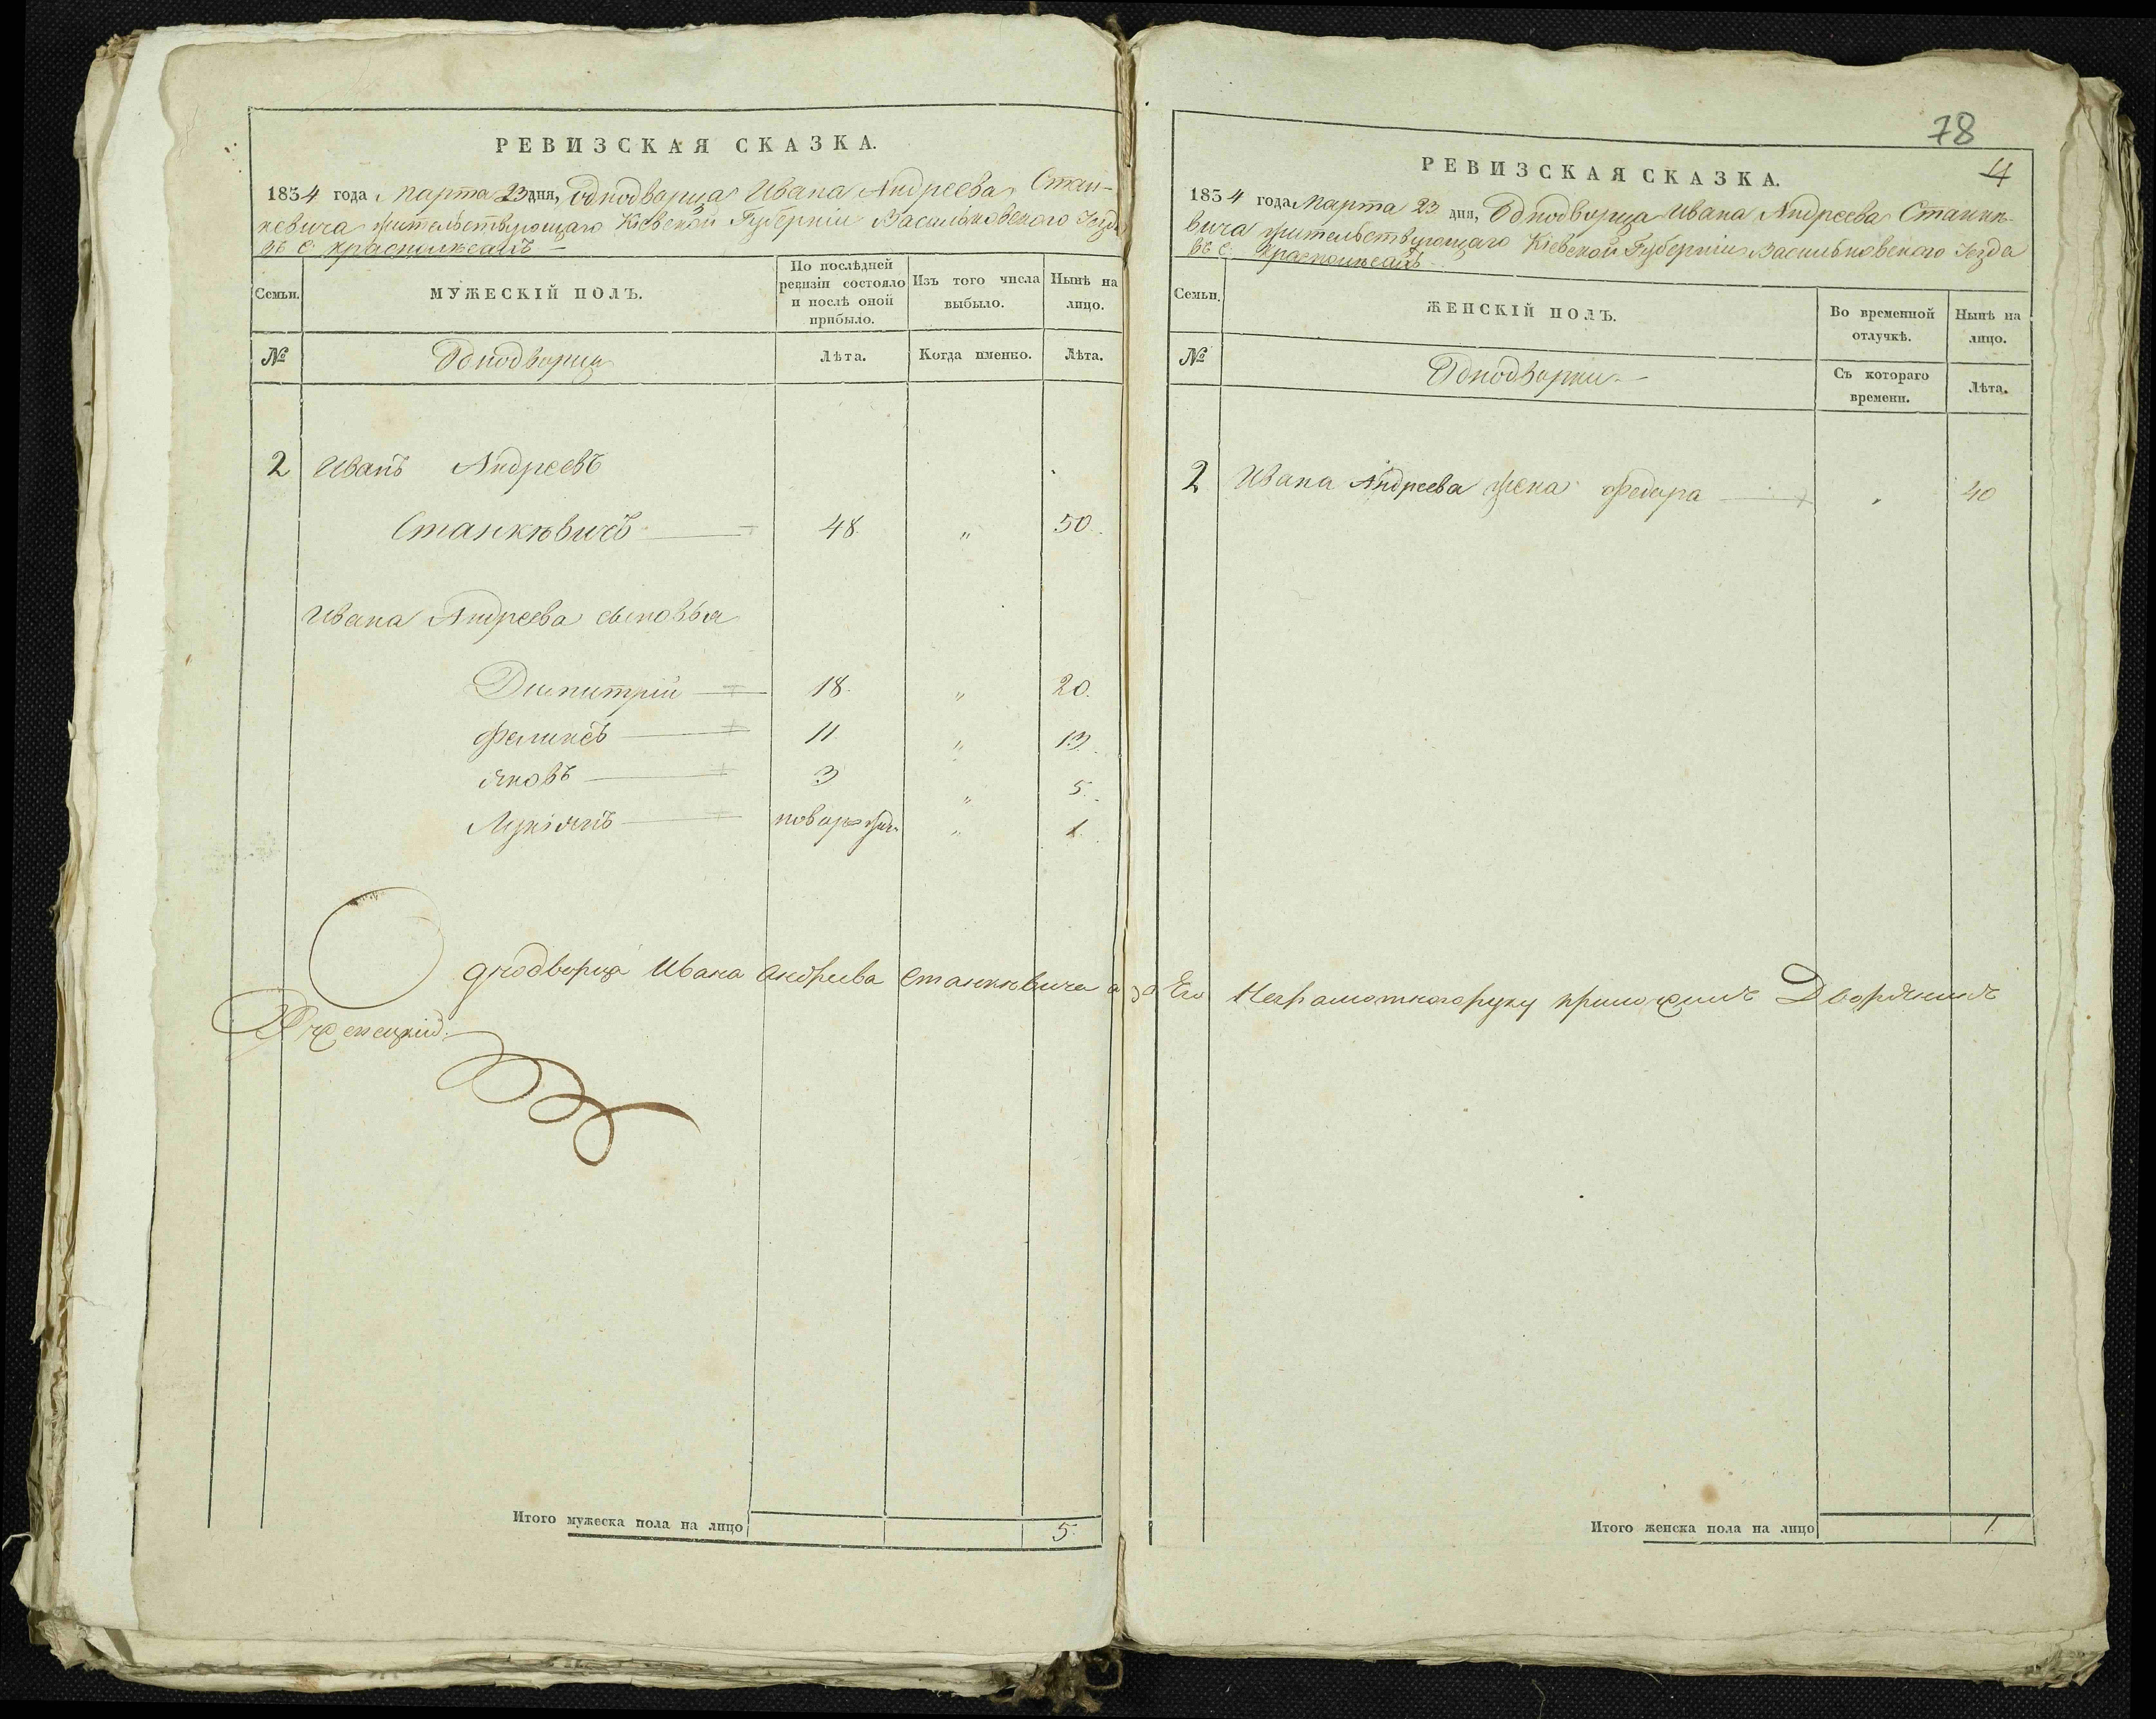 РЕВИЗСКАЯ СКАЗКА.
1834 года Марта 23 дня, Однодворца Ивана Андреева Стан-
кевича жительствующаго Кіевской Губерніи Васильковского Уезда
въ с.
Семьи.
МУЖЕСКІЙ ПОЛЪ.
По послѣдней ревизіи состояло и послѣ оной прибыло.
Изъ того числа выбыло.
Нынѣ на лицо.
№
Однодворцы
Лѣта.
Когда именно.
Лѣта.
2 Иванъ Андреевъ
Станкѣвичъ 48. " 50.
Ивана Андреева сыновья
Димитрій 18. " 20.
Феликсъ 11 " 13.
Яковъ 3 " 5.
Лукіянъ новорожд. " 1.
Однодворца Ивана Андреева Станкѣвича а за Его Неграмотного руку приложилъ Дворянинъ
Итого мужеска пола на лицо 5.
78
4
РЕВИЗСКАЯ СКАЗКА.
1834 года Марта 23 дня, Однодворца Ивана Андреева Станкѣ-
вича жительствующаго Кіевской Губерніи Васильковского Уезда
въ с.
Семьи.
ЖЕНСКІЙ ПОЛЪ.
Во временной отлучкѣ.
Нынѣ на лицо.
№
Однодворки
Съ котораго времени.
Лѣта.
2 Ивана Андреева жена Федора " 40
Итого женска пола на лицо 1.